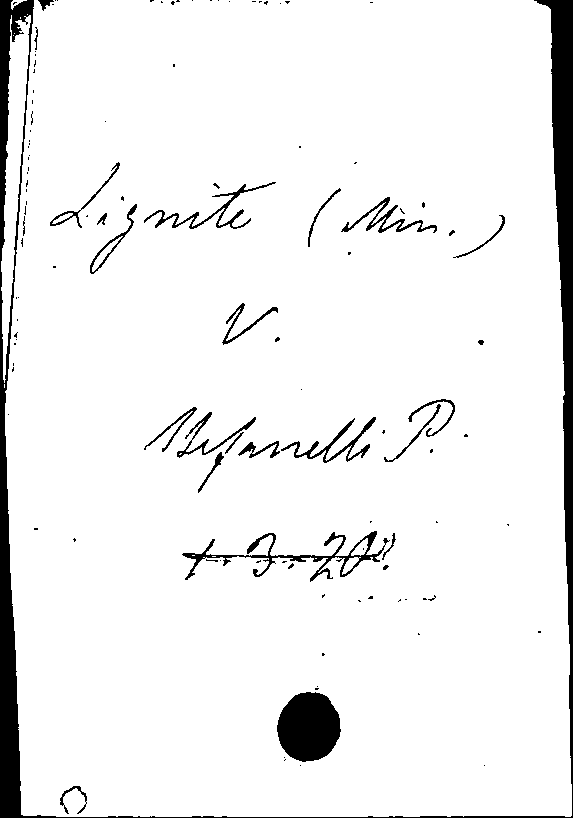 Lignite (Min.)
V.
Stefanelli P.
1.3.20